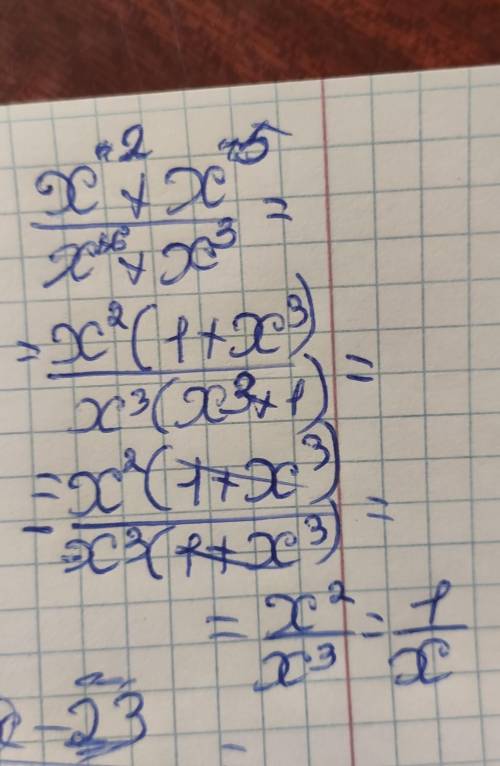 x^2 + x^5 / x^6 + x^3 =
= x^2(1+x^3) / x^3(x^3+1) =
= x^2(1+x^3) / x^3(1+x^3) =
= x^2 / x^3 = 1 / x
- 23